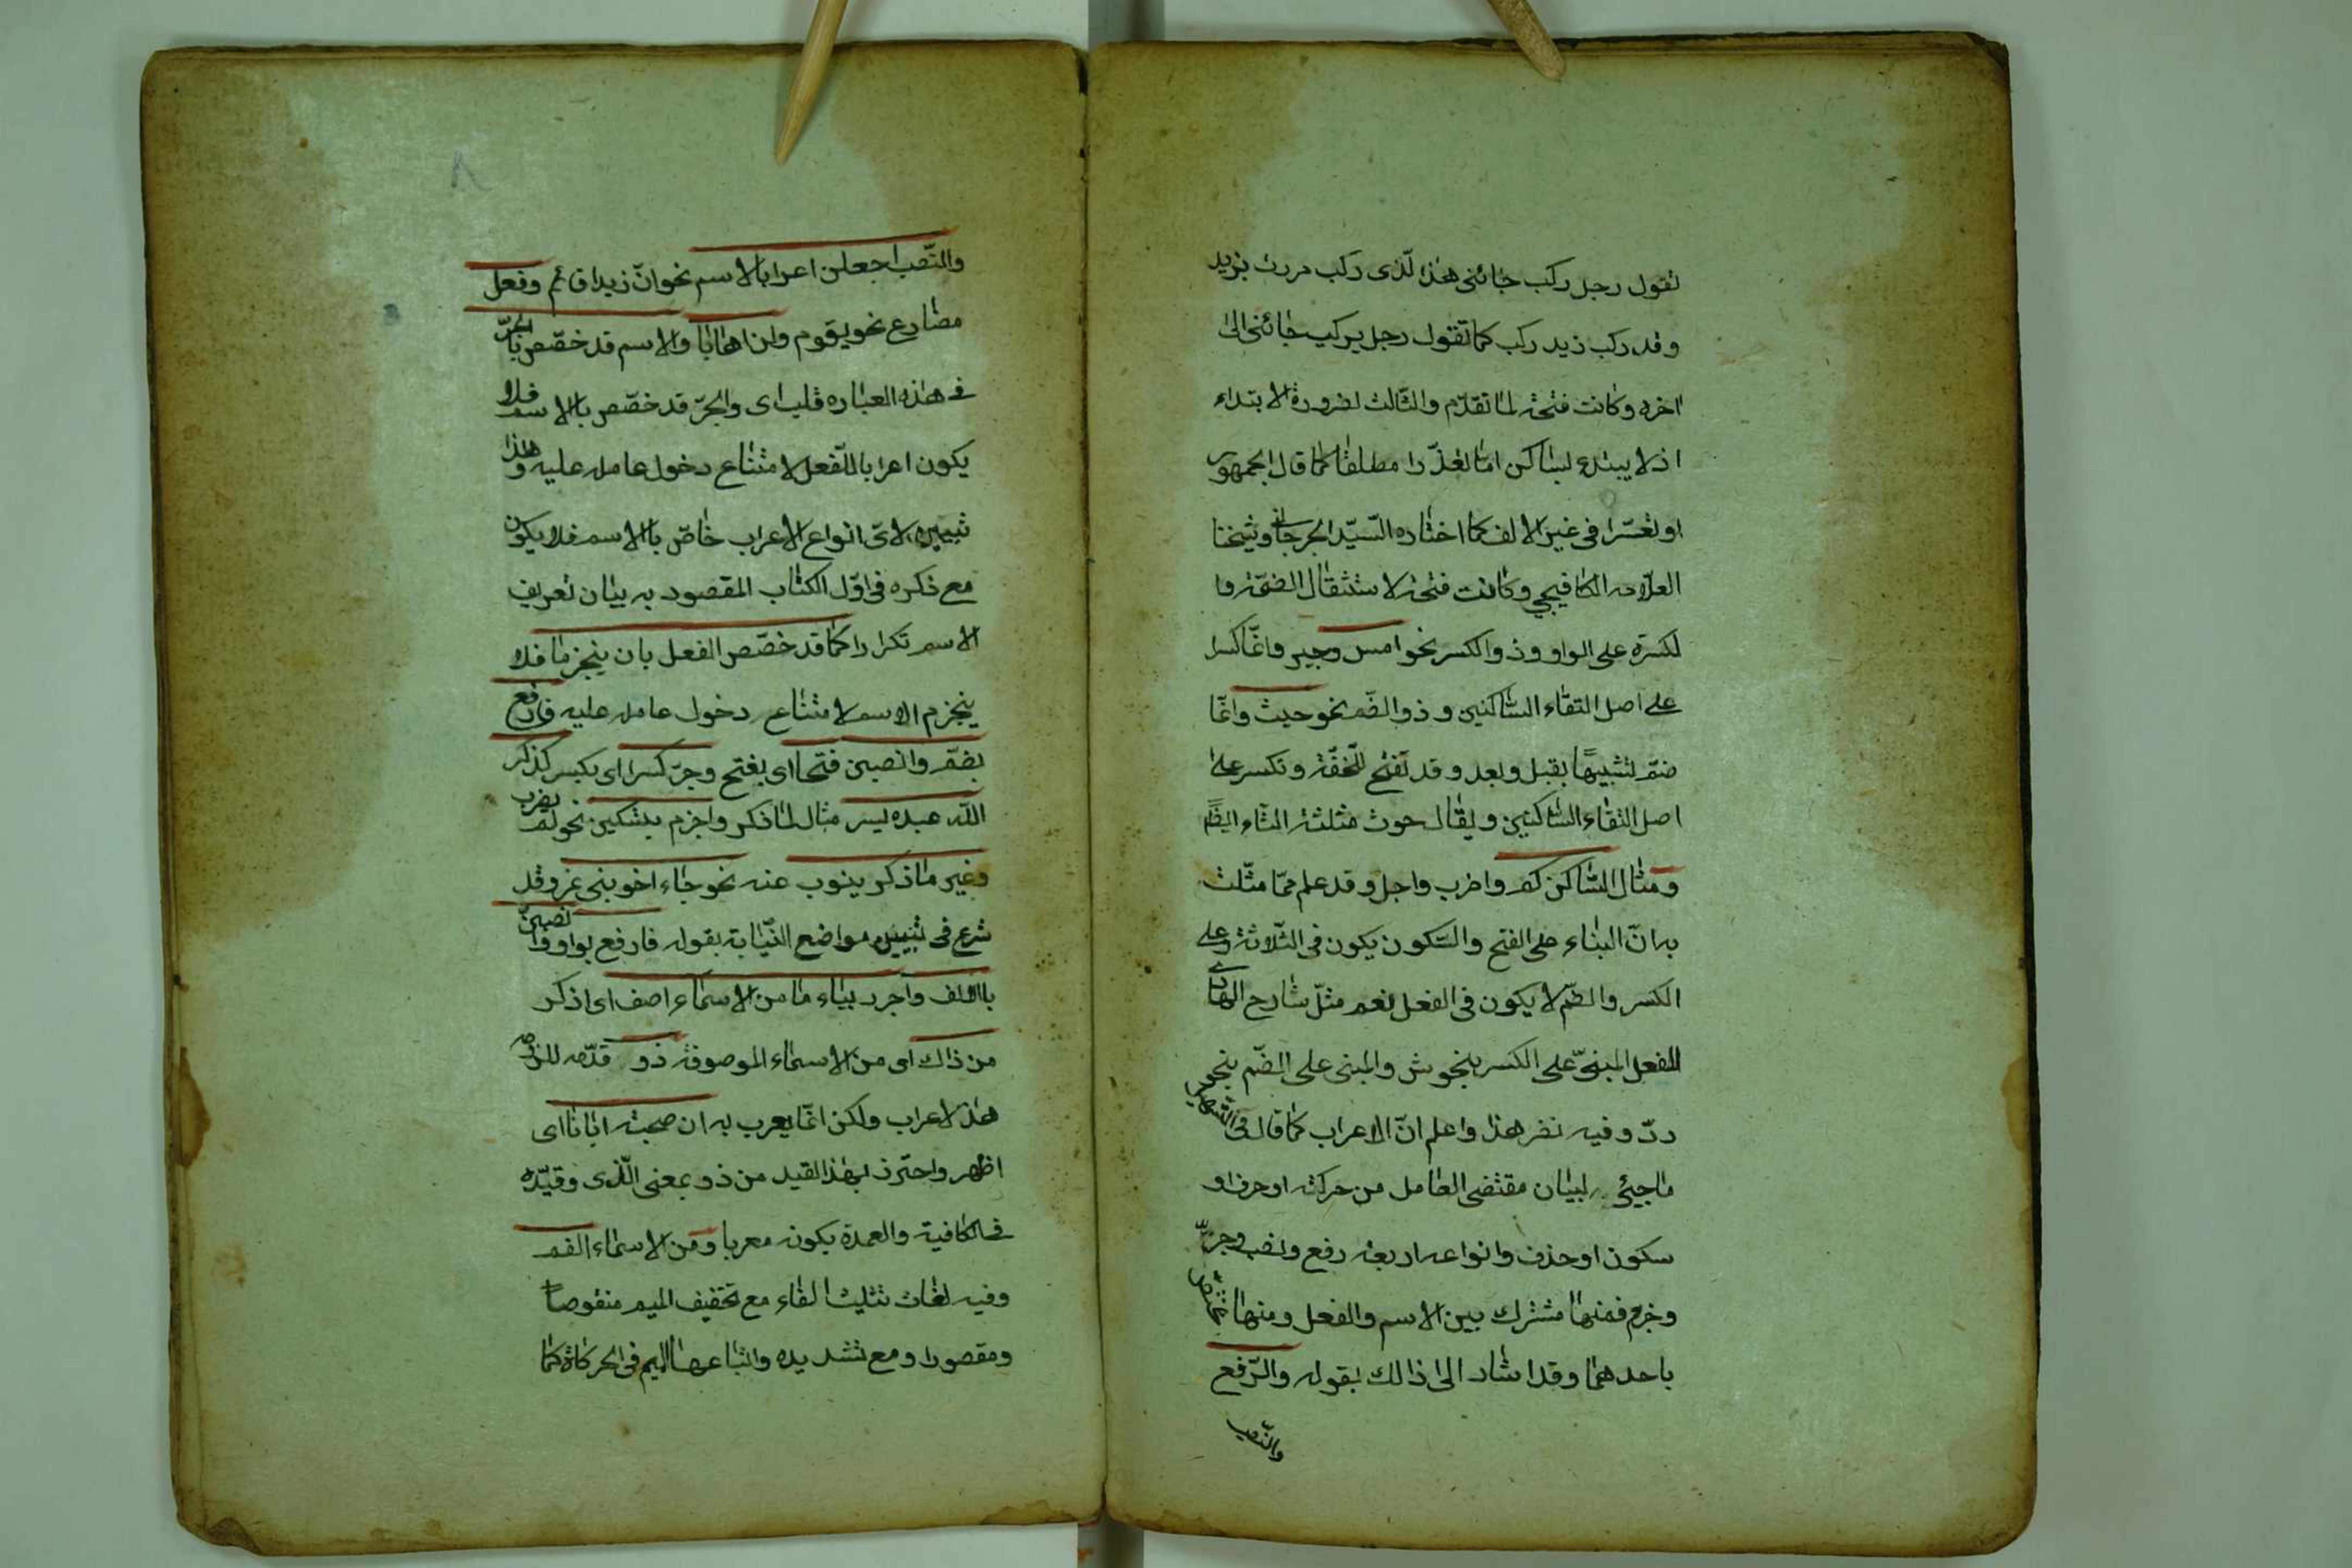 تقول رجل ركب جائنى هذا لّذى ركب مررت بزيد
وقد ركب زيد ركب كما تقول رجل يركب جائنى الى
اخره وكانت فتحة لما تقدّم والثّالث لضرورة الابتداء
اذ لا يبتدء لبساكن امّا لغذّرا مطلقا كما قال الجمهور
او تعسّرا فى غير الالف كما اختاره السّيّد الجرجانى وشيخنا
العلّامه الكافيجي وكانت فتحة لاستثقال الضمّة وا
لكسرة على الواو وذو الكسر نحو امس وجير وانّما كسرا
على اصل التقاء السّاكنين وذو الضّم نحو حيث وانّما
ضمّ لشبيهًا بقبل وبعد وقد تفتح للّخفّة وتكسر على
اصل التقاء السّاكنين ويقال حوث مثلثة الثّاء ايضًا
ومثال السّاكن كم واضرب واجل وقد علم ممّا مثّلت
به انّ البناء على الفتح والسّكون يكون فى الثّلاثة وعلى
الكسر والضّم لا يكون فى الفعل نعم مثّل شارح الهادى
للفعل المبنىّ على الكسر بنحوش والمبنى على الضّم بنحو
ردّ وفيه نظر هذا واعلم انّ الاعراب كما قال فى التّسهيل
ما جيئ به لبيان مقتضى العامل من حركة او حرف او
سكون او حذف وانواعه اربعة رفع ونصب وجرّ
وجزم فمنها مشترك بين الاسم والفعل ومنها مختصّ
باحدهما وقد اشار الى ذالك بقوله والرّفع
والنّصب
٨
والنّصب اجعلن اعرابا لاسم نحو انّ زيدا قائم وفعل
مضارع نحو يقوم ولن اهابا والاسم قد خصّص بالجرّ
فى هذه العباره قلب اى والجرّ قد خصّص بالاسم فلا
يكون اعرابا للّفعل لامتناع دخول عامله عليه وهذا
تبيين لاىّ انواع الاعراب خاصّ بالاسم فلا يكون
مع ذكره فى اوّل الكتاب المقصود به بيان تعريف
الاسم تكرارا كما قد خصّص الفعل بان ينجزما فلا
ينجزم الاسم لامتناع دخول عامله عليه فارفع
بضمّ وانصبن فتحا اى بفتح وجرّ كسرا اى بكسر كذكر
اللّه عبده يسر مثال لما ذكر واجزم بتسكين نحو لم يضرب
وغير ما ذكر ينوب عنه نحو جاء اخو بنى نمر وقد
شرع فى تبيين مواضع النّيابة بقوله فارفع بواو وانصبنّ
بالالف واجرر بياء ما من الاسماء اصف اى اذكر
من ذاك اى من الاسماء الموصوفة ذو قدّمه للزومه
هذا لاعراب ولكن انّما يعرب به ان صحبة ابانا اى
اظهر واحترز بهذا القيد من ذو بمعنى الّذى وقيّده
فى الكافية والعمدة بكونه معربا ومن الاسماء الفم
وفيه لغات تثليث الفاء مع تخفيف الميم منقوصا
ومقصورا ومع تشديده واتباعها الميم فى الحركاة كما